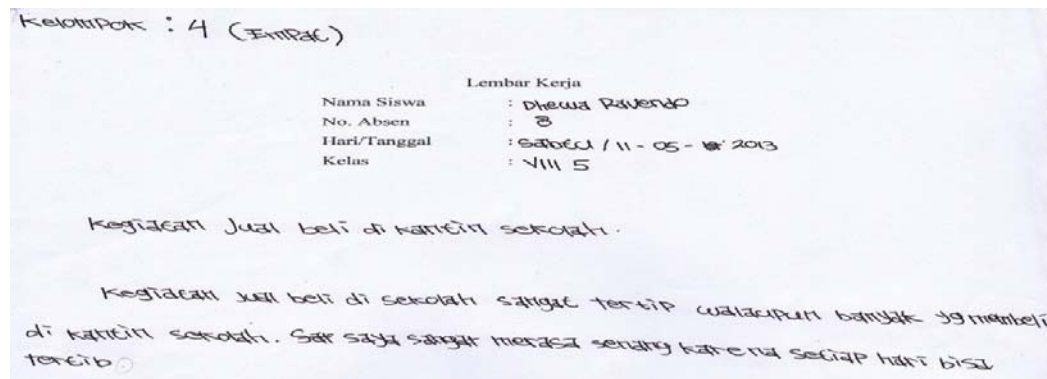 Kelompok : 4 (Empat)
Lembar Kerja
Nama Siswa : Dhewa Ravendo
No. Absen : 8
Hari/Tanggal : Sabtu / 11 - 05 - 2013
Kelas : VIII 5
Kegiatan Jual beli di kantin sekolah.
Kegiatan Jual beli di sekolah sangat tertip walaupun banyak yg membeli
di kantin sekolah. saya sangat merasa senang karena setiap hari bisa
tertib